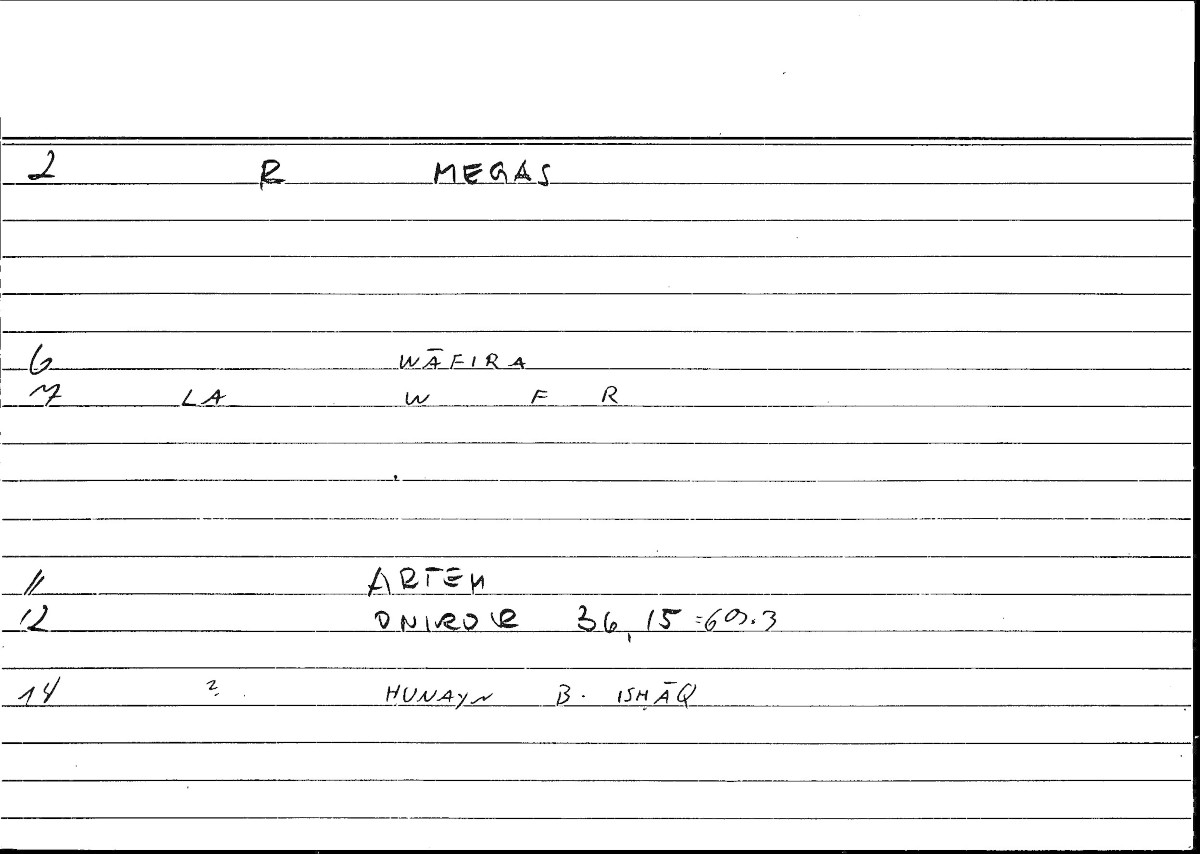 2 R MEGAS
6 WĀFIRA
7 LA W F R
11 ARTEM
12 ONIROCR 36,15 =69.3
14 ? HUNAYN B. ISḤĀQ